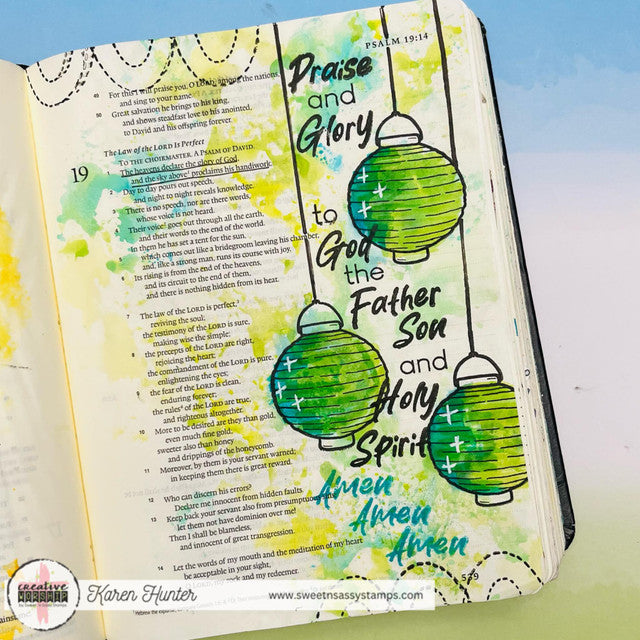 PSALM 19:14
49 For this I will praise you, O LORD, among the nations,
and sing to your name
50 Great salvation he brings to his king,
and shows steadfast love to his anointed,
to David and his offspring forever.
The Law of the LORD Is Perfect
TO THE CHOIRMASTER. A PSALM OF DAVID.
19 1 The heavens declare the glory of God,
and the sky above proclaims his handiwork.
2 Day to day pours out speech,
and night to night reveals knowledge.
3 There is no speech, nor are there words,
whose voice is not heard.
4 Their voice goes out through all the earth,
and their words to the end of the world.
In them he has set a tent for the sun,
5 which comes out like a bridegroom leaving his chamber,
and, like a strong man, runs its course with joy.
6 Its rising is from the end of the heavens,
and its circuit to the end of them,
and there is nothing hidden from its heat.
7 The law of the LORD is perfect,
reviving the soul;
the testimony of the LORD is sure,
making wise the simple;
8 the precepts of the LORD are right,
rejoicing the heart;
the commandment of the LORD is pure,
enlightening the eyes;
9 the fear of the LORD is clean,
enduring forever;
the rules of the LORD are true,
and righteous altogether.
10 More to be desired are they than gold,
even much fine gold;
sweeter also than honey
and drippings of the honeycomb.
11 Moreover, by them is your servant warned;
in keeping them there is great reward.
12 Who can discern his errors?
Declare me innocent from hidden faults.
13 Keep back your servant also from presumptuous
let them not have dominion over me!
Then I shall be blameless,
and innocent of great transgression.
14 Let the words of my mouth and the meditation of my heart
be acceptable in your sight,
my rock and my redeemer.
Praise
and
Glory
to
God
the
Father
Son
and
Holy
Spirit
Amen
Amen
Amen
539
creative
WORSHIP
Karen Hunter
www.sweetnsassystamps.com